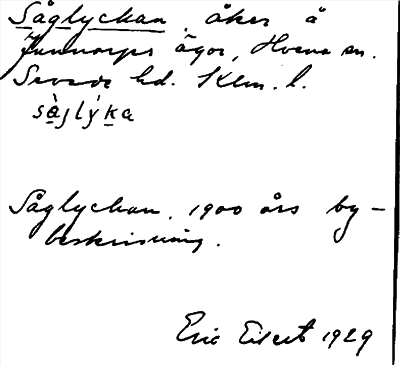 Såglyckan, åker å
Junnarps ägor, Hvena sn.
Sevede hd. Klm. l.
sàjlýka
Såglyckan. 1900 års by-
beskrivning.
Eric Eilert 1929